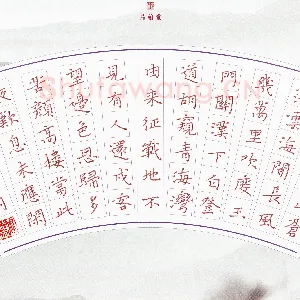 山蒼
雲海間長風
幾萬里吹度玉
門關漢下白登
道胡窺青海灣
由來征戰地不
見有人還戍客
望邊色思歸多
苦顏高樓當此
夜歎息未應閑
Shufawang.CN